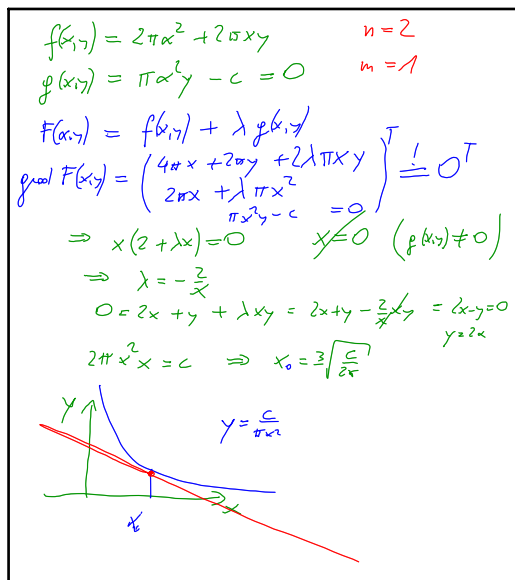 f(x,y) = 2πx² + 2πxy n = 2
g(x,y) = πx²y - c = 0 m = 1
F(x,y) = f(x,y) + λ g(x,y)
grad F(x,y) = (4πx + 2πy + 2λπxy
2πx + λπx²
πx²y - c = 0)ᵀ =! 0ᵀ
⇒ x(2 + λx) = 0 x = 0 (g(x,y) ≠ 0)
⇒ λ = -2/x
0 = 2x + y + λxy = 2x + y - 2/x xy = 2x - y = 0
y = 2x
2πx²x = c ⇒ x₀ = ³√(c/2π)
y
y = c/πx²
x
x₀